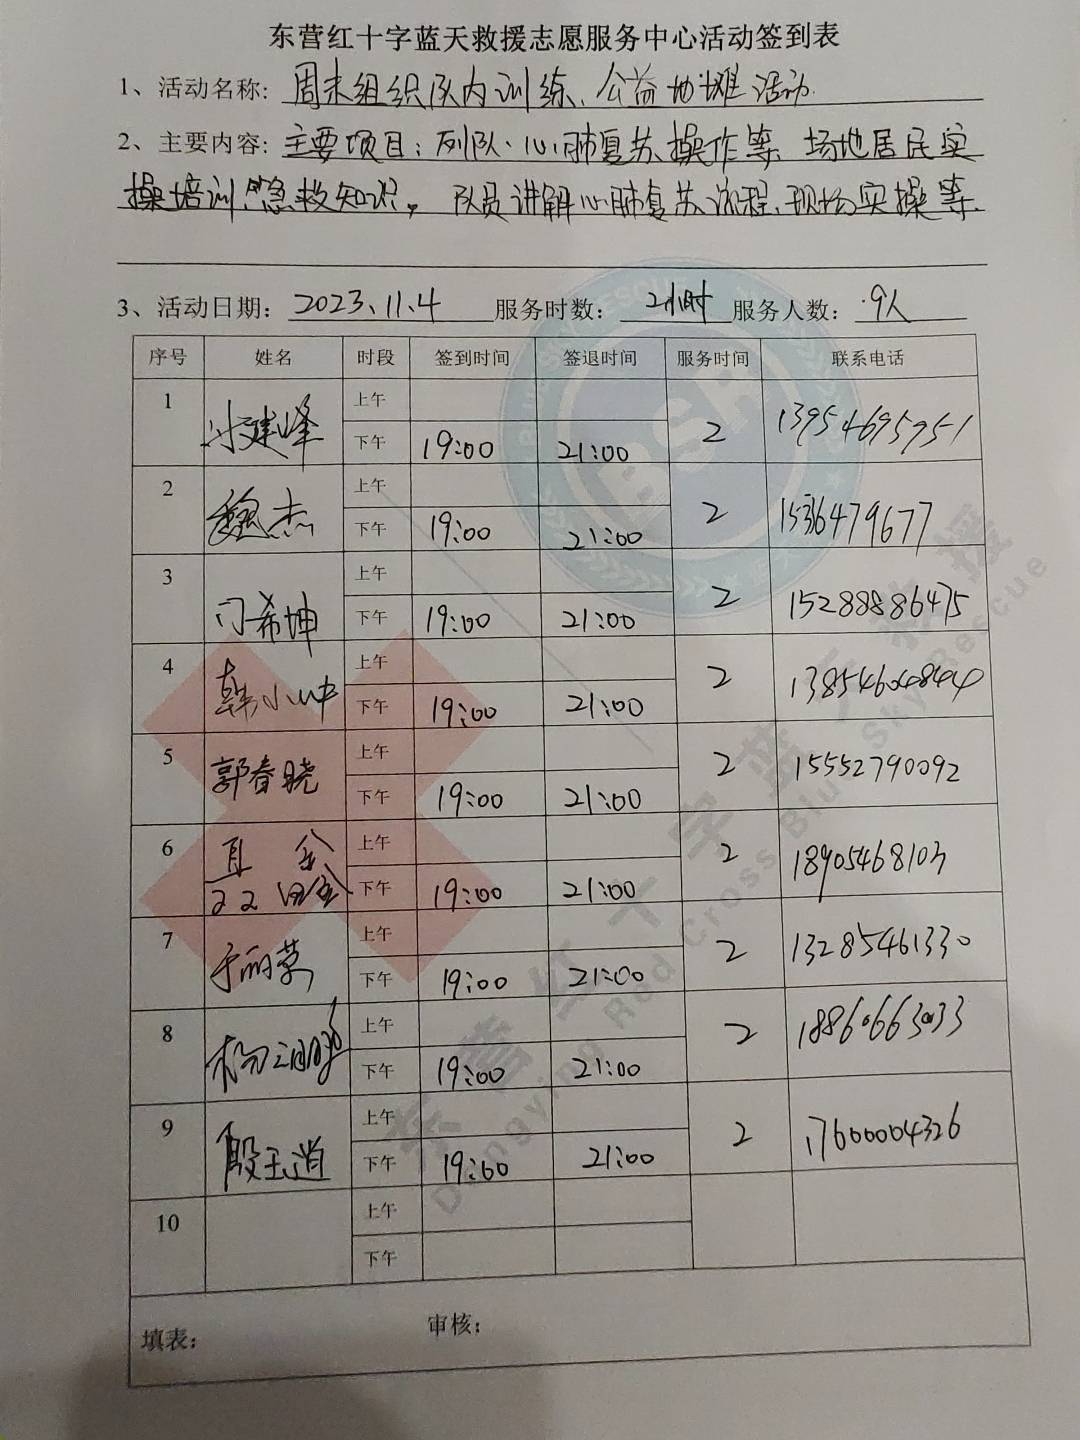 东营红十字蓝天救援志愿服务中心活动签到表
1、活动名称: 周末组织队内训练、公益地摊活动.
2、主要内容: 主要项目:列队、心肺复苏操作等、场地居民实
操培训急救知识。队员讲解心肺复苏流程、现场实操等.
3、活动日期: 2023.11.4 服务时数: 2小时 服务人数: 9人
序号 姓名 时段 签到时间 签退时间 服务时间 联系电话
1 建峰 上午
下午 19:00 21:00 2 13954695951
2 魏杰 上午
下午 19:00 21:00 2 15364779677
3 门希坤 上午
下午 19:00 21:00 2 15288886475
4 韩小中 上午
下午 19:00 21:00 2 13854604844
5 郭春晓 上午
下午 19:00 21:00 2 15552790092
6 上午
下午 19:00 21:00 2 18905468103
7 于丽荣 上午
下午 19:00 21:00 2 13285461330
8 杨 上午
下午 19:00 21:00 2 18860663033
9 殷玉道 上午
下午 19:00 21:00 2 17600004326
10 上午
下午
填表: 审核:
东营红十字蓝天救援
Dongying Red Cross Blue Sky Rescue
BSR